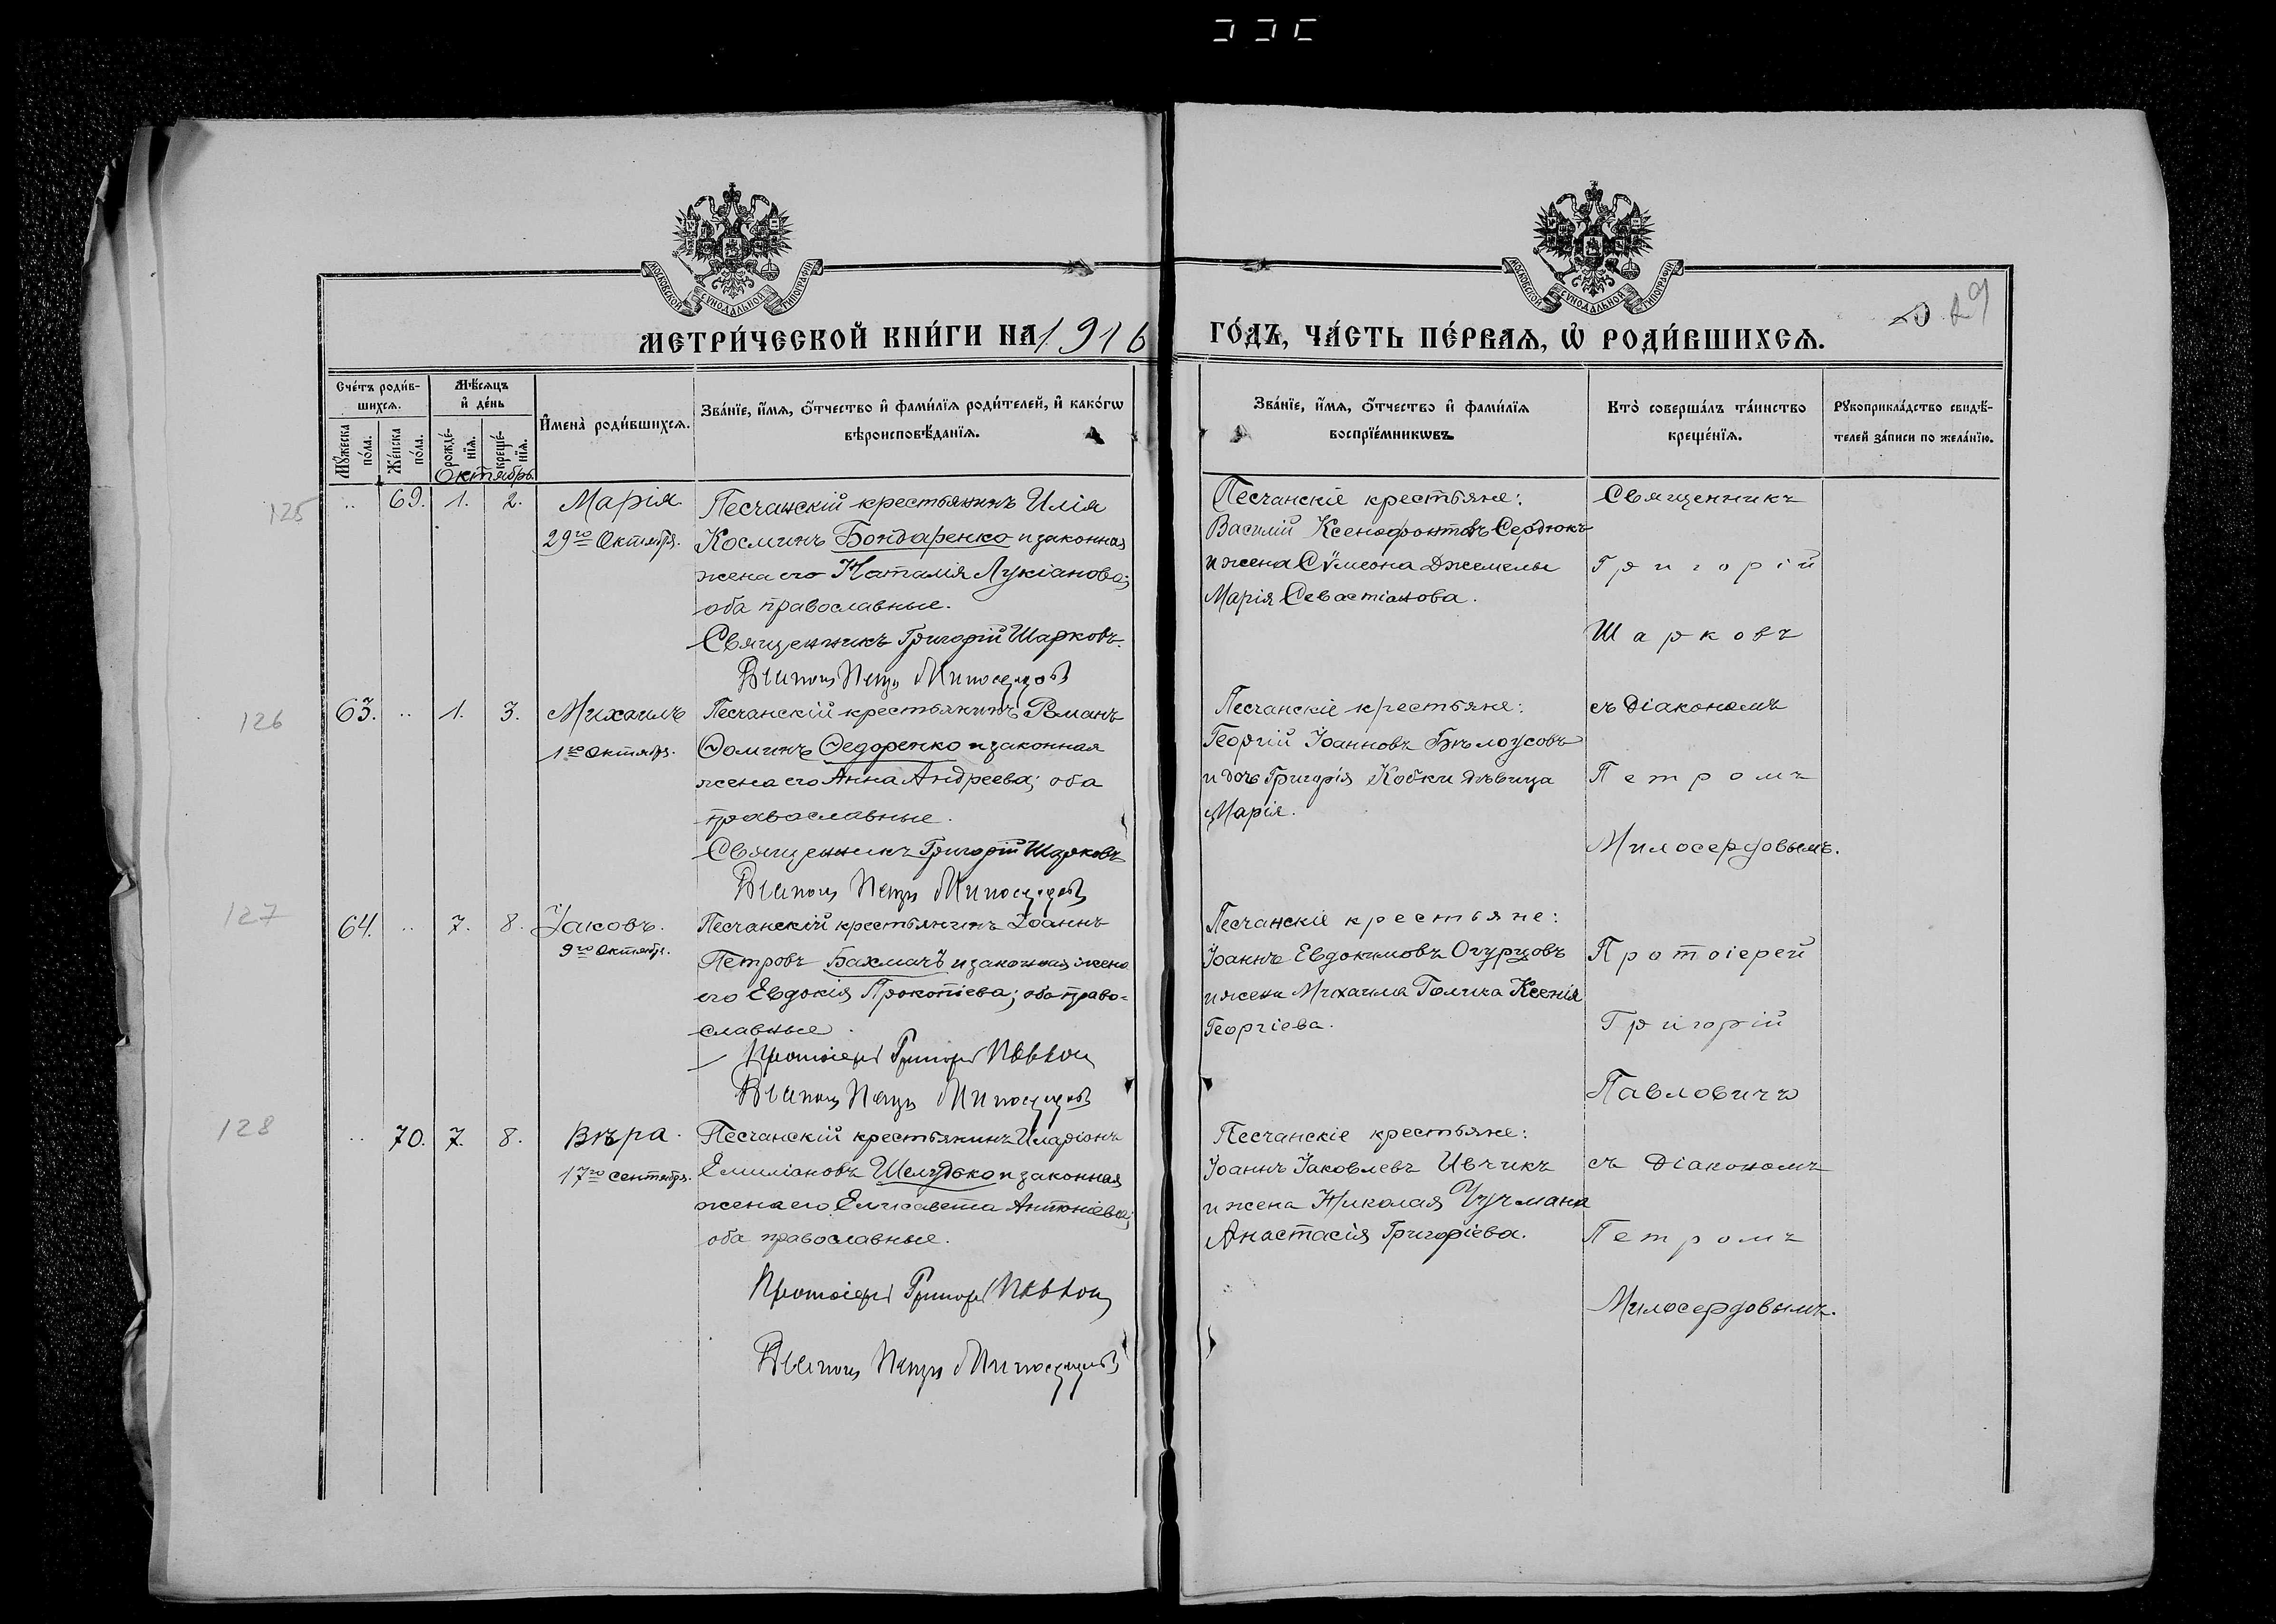 МОСКОВСКОЙ СѴНОДАЛЬНОЙ ТИПОГРАФІИ
МОСКОВСКОЙ СѴНОДАЛЬНОЙ ТИПОГРАФІИ
29
МЕТРИ́ЧЕСКОЙ КНИ́ГИ НА 1916
ГО́ДЪ, ЧА́СТЬ ПЕ́РВАѦ, Ѡ҆ РОДИ́ВШИХСѦ.
Сче́тъ роди́в-
шихсѧ.
Мѣ́сѧцъ
и҆ де́нь
Мꙋ́жеска
по́ла.
Же́нска
по́ла.
рожде́-
нїѧ.
креще́-
нїѧ.
И҆мена̀ роди́вшихсѧ.
Зва́нїе, и҆́мѧ, ѻ҆́тчество и҆ фами́лїѧ роди́телей, и҆ како́гѡ
вѣроисповѣ́данїѧ.
Зва́нїе, и҆́мѧ, ѻ҆́тчество и҆ фами́лїѧ
воспрїе́мникѡвъ.
Кто̀ соверша́лъ та́инство
креще́нїѧ.
Рꙋкоприкла́дство свидѣ́-
телей за́писи по жела́нїю.
Октябрь
125
69. 1. 2. Марія
29го Октября.
Песчанскій крестьянинъ Илія
Косминъ Бондаренко и законная
жена его Наталія Лукіанова;
оба православные.
Священникъ Григорій Шарковъ.
Діаконъ Петръ Милосердовъ
Песчанскіе крестьяне:
Василій Ксенофонтовъ Сердюкъ
и жена Сѵмеона Джемелы
Марія Севастіанова.
Священникъ
Григорій
Шарковъ
126
63. 1. 3. Михаилъ
1го Октября.
Песчанскій крестьянинъ Романъ
Ѳоминъ Ѳедоренко и законная
жена его Анна Андреева; оба
православные.
Священникъ Григорій Шарковъ
Діаконъ Петръ Милосердовъ
Песчанскіе крестьяне:
Георгій Іоанновъ Бѣлоусовъ
и дочь Григорія Кобки дѣвица
Марія.
съ Діакономъ
Петромъ
Милосердовымъ.
127
64. 7. 8. Іаковъ.
9го Октября.
Песчанскій крестьянинъ Іоаннъ
Петровъ Бахмачъ и законная жена
его Евдокія Прокопіева; оба право-
славные.
Протоіерей Григорій Павлович
Діаконъ Петръ Милосердовъ
Песчанскіе крестьяне:
Іоаннъ Евдокимовъ Огурцовъ
и жена Михаила Голика Ксенія
Георгіева.
Протоіерей
Григорій
Павловичъ
128
70. 7. 8. Вѣра.
17го Сентября.
Песчанскій крестьянинъ Иларіонъ
Емиліановъ Шелудько и законная
жена его Елисавета Антоніева;
оба православные.
Протоіерей Григорій Павлович
Діаконъ Петръ Милосердовъ
Песчанскіе крестьяне:
Іоаннъ Іаковлевъ Ивчикъ
и жена Николая Чучмана
Анастасія Григоріева.
съ Діакономъ
Петромъ
Милосердовымъ.